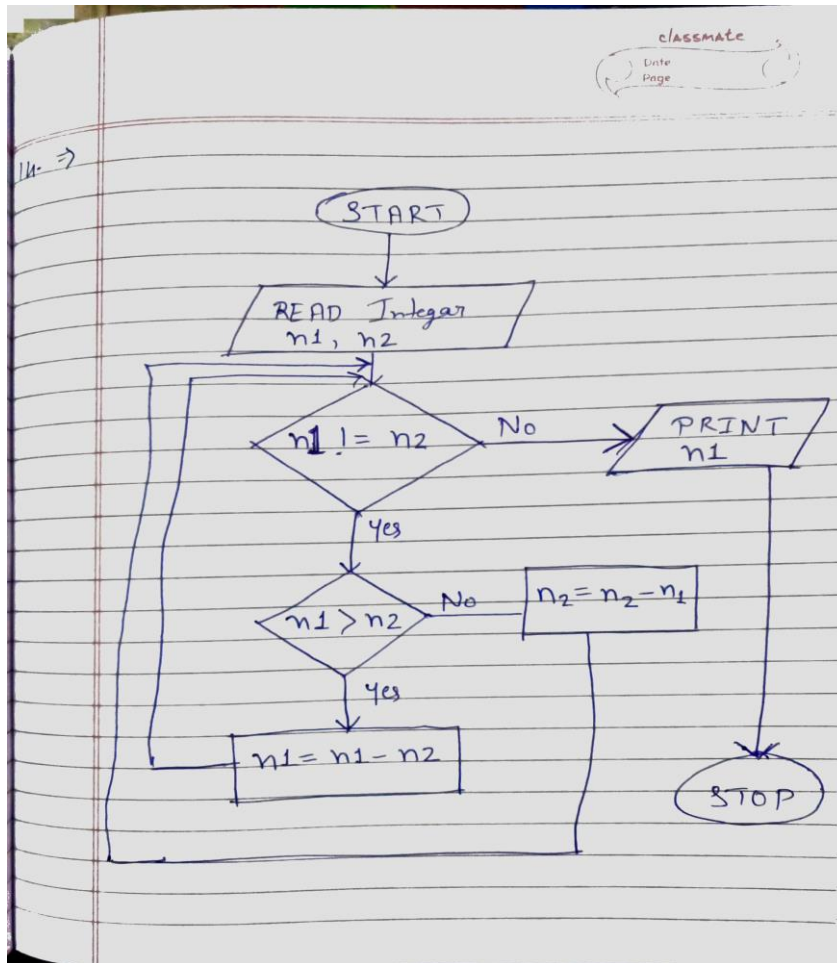 classmate
Date
Page
14. ⇒
START
READ Integar
n1, n2
n1 != n2
No
PRINT
n1
Yes
n1 > n2
No
n2 = n2 - n1
Yes
n1 = n1 - n2
STOP